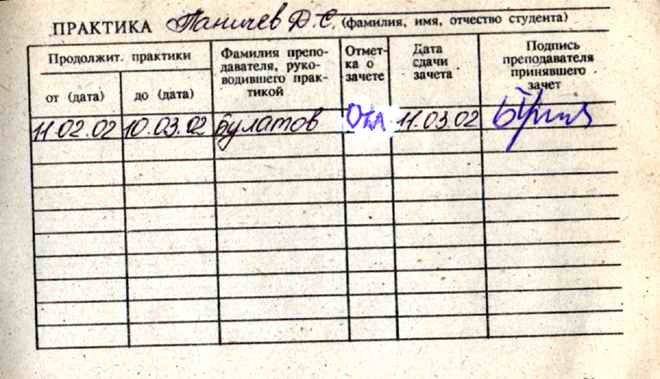 ПРАКТИКА Паничев Д.С. (фамилия, имя, отчество студента)
Продолжит. практики
от (дата)
до (дата)
Фамилия препо-
давателя, руко-
водившего прак-
тикой
Отмет-
ка о
зачете
Дата
сдачи
зачета
Подпись
преподавателя
принявшего
зачет
11.02.02 10.03.02 Булатов Отл 11.03.02